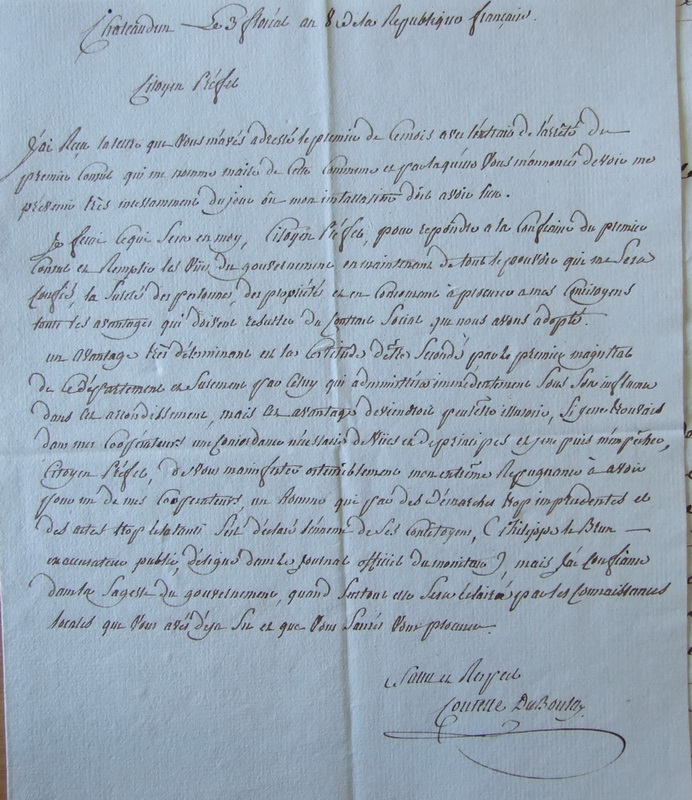 Chateaudun Le 3 floréal an 8 de la Republique française.
Citoyen Préfet
J'ai Reçu la lettre que vous m'avés adressé le premier de ce mois avec l'extrait de l'arrêté du
premier Consul qui me nomme maire de cette Commune et par laquelle vous m'annoncés devoir me
prévenir très incessamment du jour où mon installation doit avoir lieu.
Je ferai ce qui sera en moy, Citoyen Préfet, pour repondre a la Confiance du premier
Consul et Remplir les vües du gouvernement en maintenant de tout le pouvoir que me sera
Confié, la Sureté des personnes, des propriétés et en Concourant à procurer a mes Concitoyens
tous les avantages qui doivent resulter du Contrat Social que nous avons adopté.
un avantage très déterminant est la Certitude d'être secondé par le premier magistrat
de ce département et surement par Celuy qui administrera immédiatement sous son influence
dans cet arrondissement, mais cet avantage deviendroit peut être illusoire, si je ne trouvais
dans mes Coopérateurs une Concordance nécessaire de vües et de principes et je ne puis m'empêcher,
Citoyen Préfet, de vous manifester ostensiblement mon extrême Repugnance à avoir
pour un de mes Coopérateurs, un homme qui par des démarches trop imprudentes et
des actes trop s'est déclaré l'ennemi de ses Concitoyens, C. Philippe le Brun
ex accusateur public, désigné dans le Journal officiel du moniteur), mais j'ai Confiance
dans la Sagesse du gouvernement, quand surtout elle sera éclairée par les Connaissances
locales que vous avés déja sçu et que vous saurés vous procurer.
Salut et Respect
Costelle DuBoulay